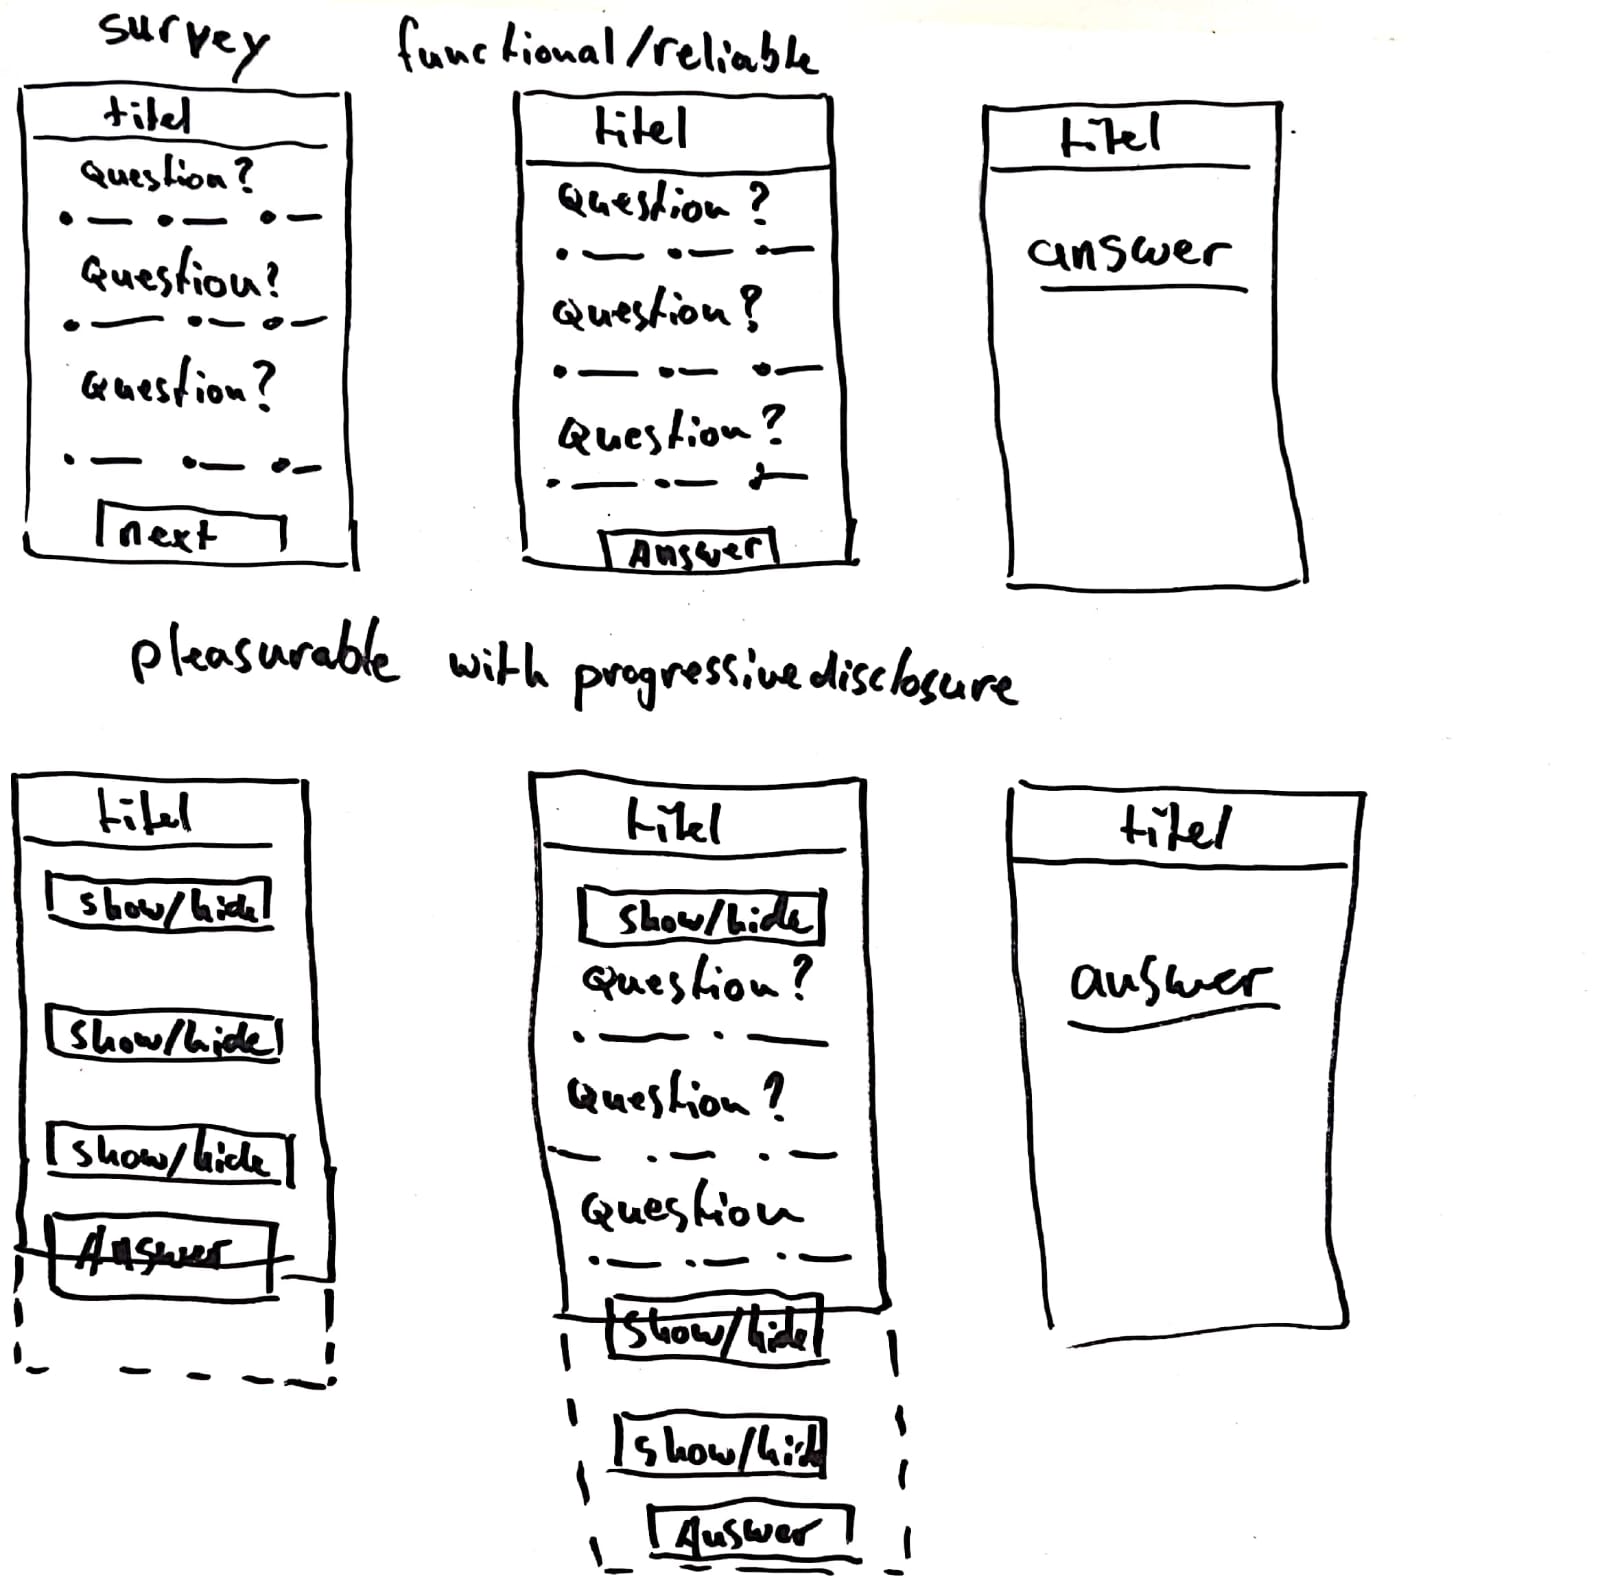 survey functional/reliable
titel
Question?
Question?
Question?
next
titel
Question?
Question?
Question?
Answer
titel
answer
pleasurable with progressive disclosure
titel
show/hide
show/hide
show/hide
Answer
titel
show/hide
Question?
Question?
Question
show/hide
show/hid
Answer
titel
answer